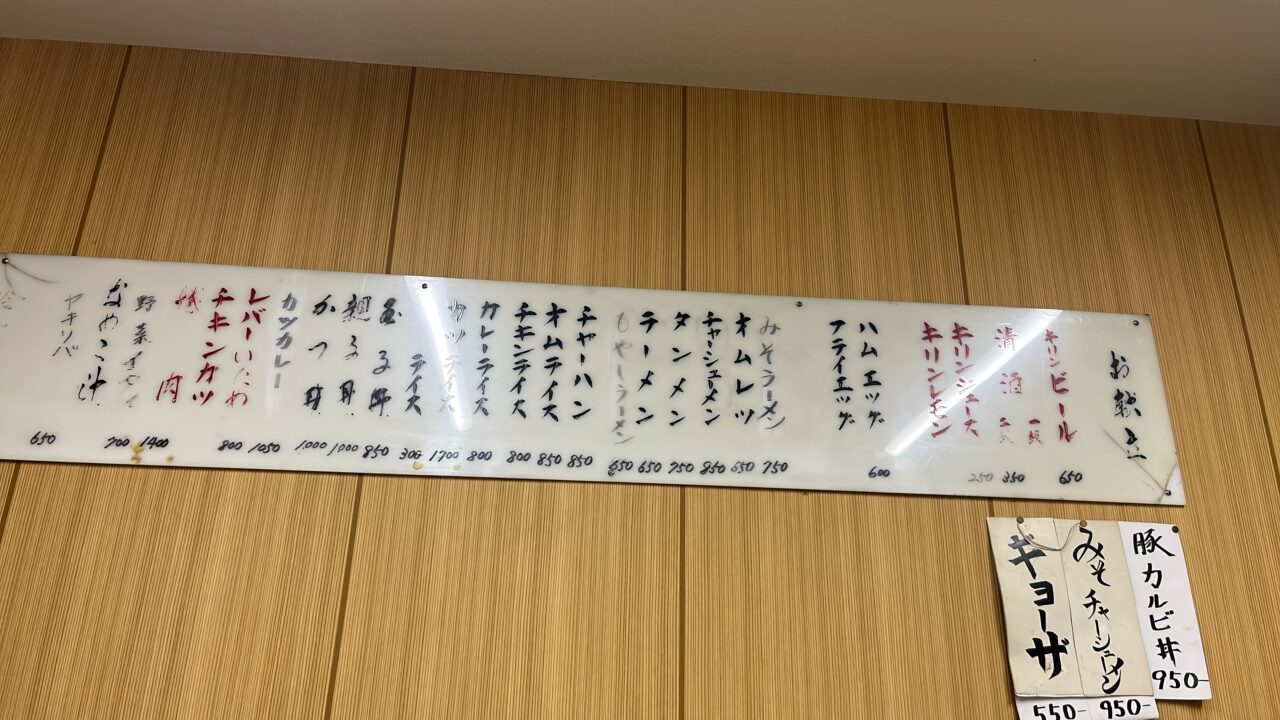 お献立
キリンビール 650
清酒 一級 350
二級 250
キリンジュース
キリンレモン
ハムエッグ 600
フライエッグ
みそラーメン 750
オムレツ 650
チャーシューメン 850
タンメン 750
ラーメン 650
もやしラーメン 650
チャーハン 850
オムライス 850
チキンライス 800
カレーライス 800
カツライス 1700
ライス 300
玉子丼 850
親子丼 1000
かつ丼 1000
カツカレー
レバーいため 1050
チキンカツ 800
焼肉 1400
野菜イタメ 700
なめこ汁
ヤキソバ 650
豚カルビ丼 950-
みそチャーシューメン 950-
ギョーザ 550-